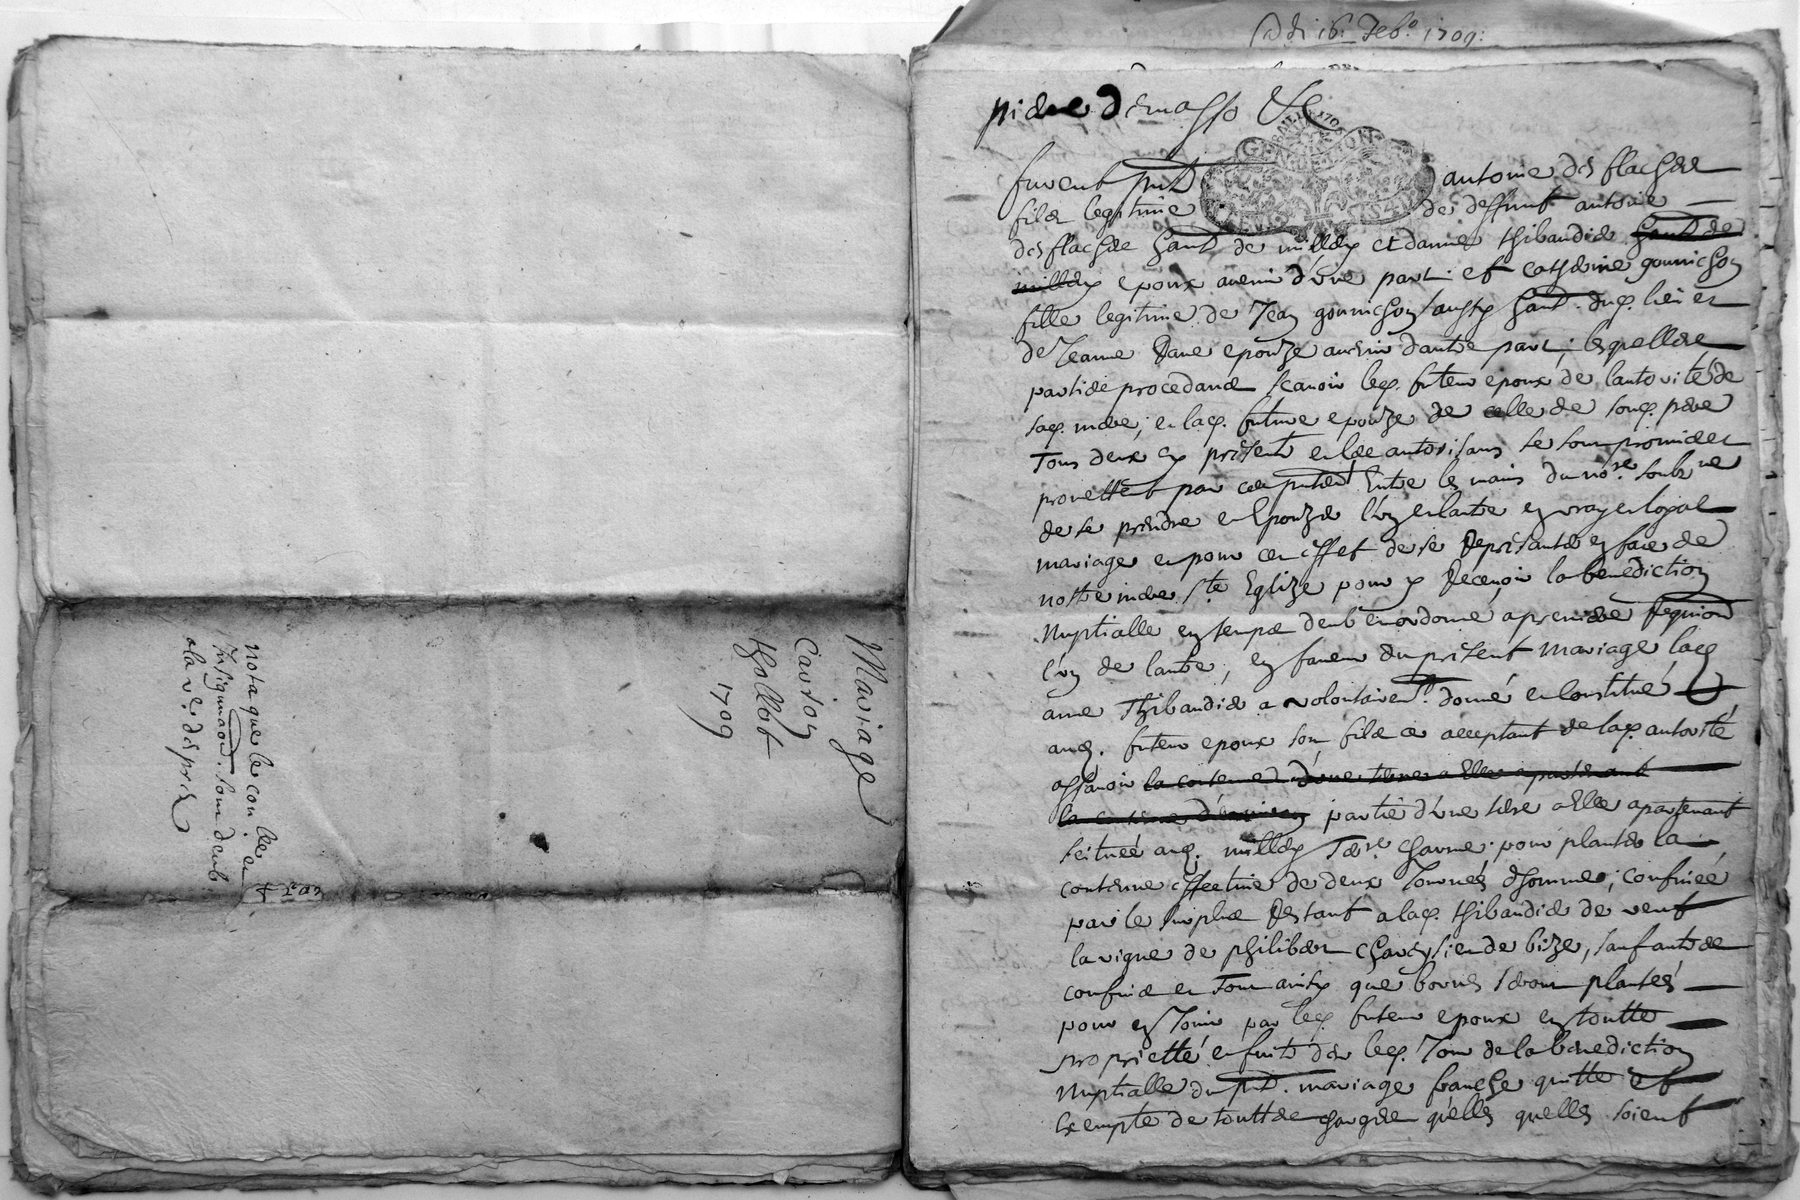 Mariage
Carion
thollot
1709
nota que le con. les en
Insignuaon. sont deub
a la v. des pris
adi 16. feb.o 1709:
pierre Demasso &c
GENERALITE DE LYON
furent pnt antoine des flacher
filz legitime de deffunt antoine
des flacher hant de milley et danne thibaudier hant de
milley epoux avenir d'une part. et catherine gonnichon
fille legitime de Jean gonnichon aussy hant. dud. lieu et
de Jeanne epouze avenir d'autre part; lesquelles
parties procedant scavoir led. futeur epoux de l'autorité de
sad. mere, et lad. future epouze de celle de sond. pere
tous deux cy présent et les autorisant se sont promis et
promettent par ces pntes Entre les mains du nore. soubz ne
de se prendre en Epouze l'un et lautre en vray et loyal
mariage et pour cet effet de se Représanter en face de
nostre mere ste Eglize pour y Recevoir la benediction
Nuptialle en temps deub et ordonné a premiere Requion
l'un de lautre, en faveur du présent mariage lad
anne Thibaudier a volontairent. donné et Constitué
aud. futeur epoux son filz ce acceptant de lad. autorité
assavoir la contenue d'une terre a Elle apartenant
la contenue d' partie d'une terre a Elle apartenant
scituéé aud. milley Terre. pour planter la
contenue effective de deux Journés d'homme, confinéé
par le surplus Restant a lad. thibaudier de vent
la vigne de philibert de bize, sauf autre
confins et tout ainsy que bornes seront plantés
pour en Jouir par led. futeur epoux en toutte
proprietté et fruits dés led. Jour de la benediction
Nuptialle du pnt. mariage franche quitte et
exempte de toutte charges quelles quelles soient